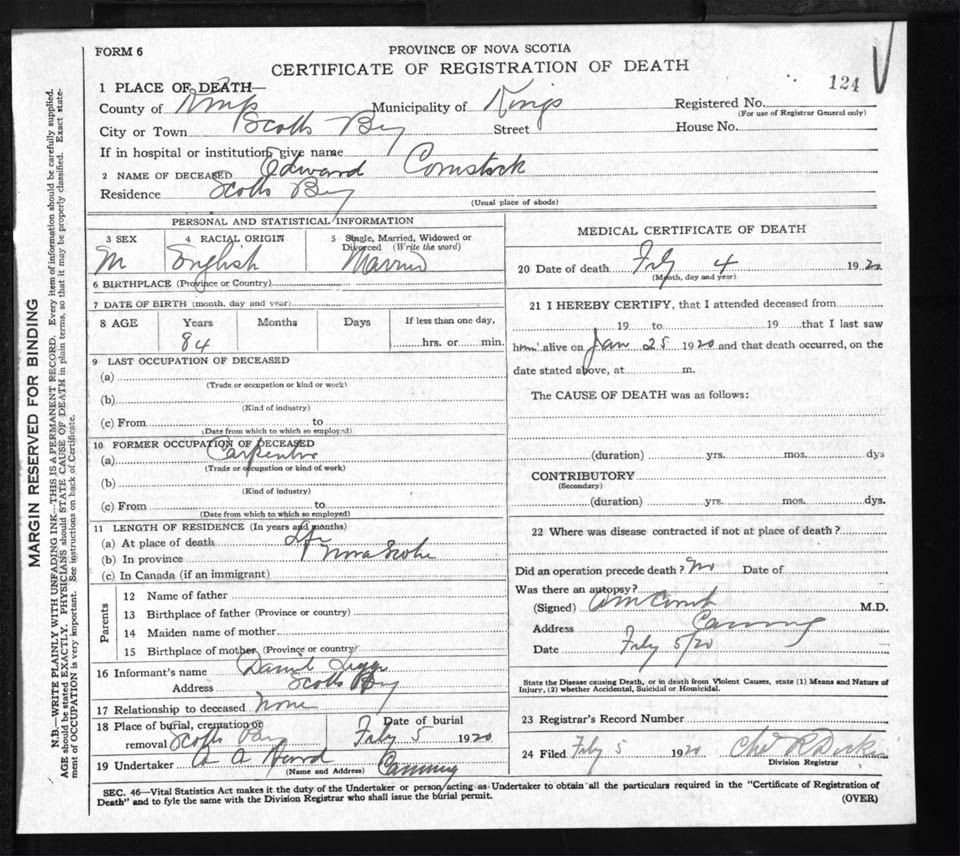 FORM 6
PROVINCE OF NOVA SCOTIA
CERTIFICATE OF REGISTRATION OF DEATH
124
1 PLACE OF DEATH—
County of Kings Municipality of Kings Registered No.
(For use of Registrar General only)
City or Town Scotts Bay Street House No.
If in hospital or institution, give name
2 NAME OF DECEASED Edward Comstock
Residence Scotts Bay
(Usual place of abode)
PERSONAL AND STATISTICAL INFORMATION
3 SEX 4 RACIAL ORIGIN 5 Single, Married, Widowed or
Divorced (Write the word)
M English Married
6 BIRTHPLACE (Province or Country)
7 DATE OF BIRTH (month, day and year)
8 AGE Years Months Days If less than one day,
84 hrs. or min.
9 LAST OCCUPATION OF DECEASED
(a)
(Trade or occupation or kind or work)
(b)
(Kind of industry)
(c) From to
(Date from which to which so employed)
10 FORMER OCCUPATION OF DECEASED
(a) Carpenter
(Trade or occupation or kind of work)
(b)
(Kind of industry)
(c) From to
(Date from which to which so employed)
11 LENGTH OF RESIDENCE (In years and months)
(a) At place of death Life
(b) In province Nova Scotia
(c) In Canada (if an immigrant)
Parents
12 Name of father
13 Birthplace of father (Province or country)
14 Maiden name of mother
15 Birthplace of mother (Province or country)
16 Informant's name Daniel
Address Scotts Bay
17 Relationship to deceased None
18 Place of burial, cremation or Date of burial
removal Scotts Bay Feby 5 1920
19 Undertaker A A Ward Canning
(Name and Address)
MEDICAL CERTIFICATE OF DEATH
20 Date of death Feby 4 1920
(Month, day and year)
21 I HEREBY CERTIFY, that I attended deceased from
19 to 19 that I last saw
him alive on Jan 25 1920 and that death occurred, on the
date stated above, at m.
The CAUSE OF DEATH was as follows:
(duration) yrs. mos. dys
CONTRIBUTORY
(Secondary)
(duration) yrs. mos. dys.
22 Where was disease contracted if not at place of death?
Did an operation precede death? No Date of
Was there an autopsy?
(Signed) M.D.
Address Canning
Date Feby 5/20
State the Disease causing Death, or in death from Violent Causes, state (1) Means and Nature of
Injury, (2) whether Accidental, Suicidal or Homicidal.
23 Registrar's Record Number
24 Filed Feby 5 1920
Division Registrar
SEC. 46—Vital Statistics Act makes it the duty of the Undertaker or person acting as Undertaker to obtain all the particulars required in the "Certificate of Registration of
Death" and to fyle the same with the Division Registrar who shall issue the burial permit.
(OVER)
MARGIN RESERVED FOR BINDING
N.B.—WRITE PLAINLY WITH UNFADING INK—THIS IS A PERMANENT RECORD. Every item of information should be carefully supplied.
AGE should be stated EXACTLY. PHYSICIANS should STATE CAUSE OF DEATH in plain terms, so that it may be properly classified. Exact state-
ment of OCCUPATION is very important. See instructions on back of Certificate.